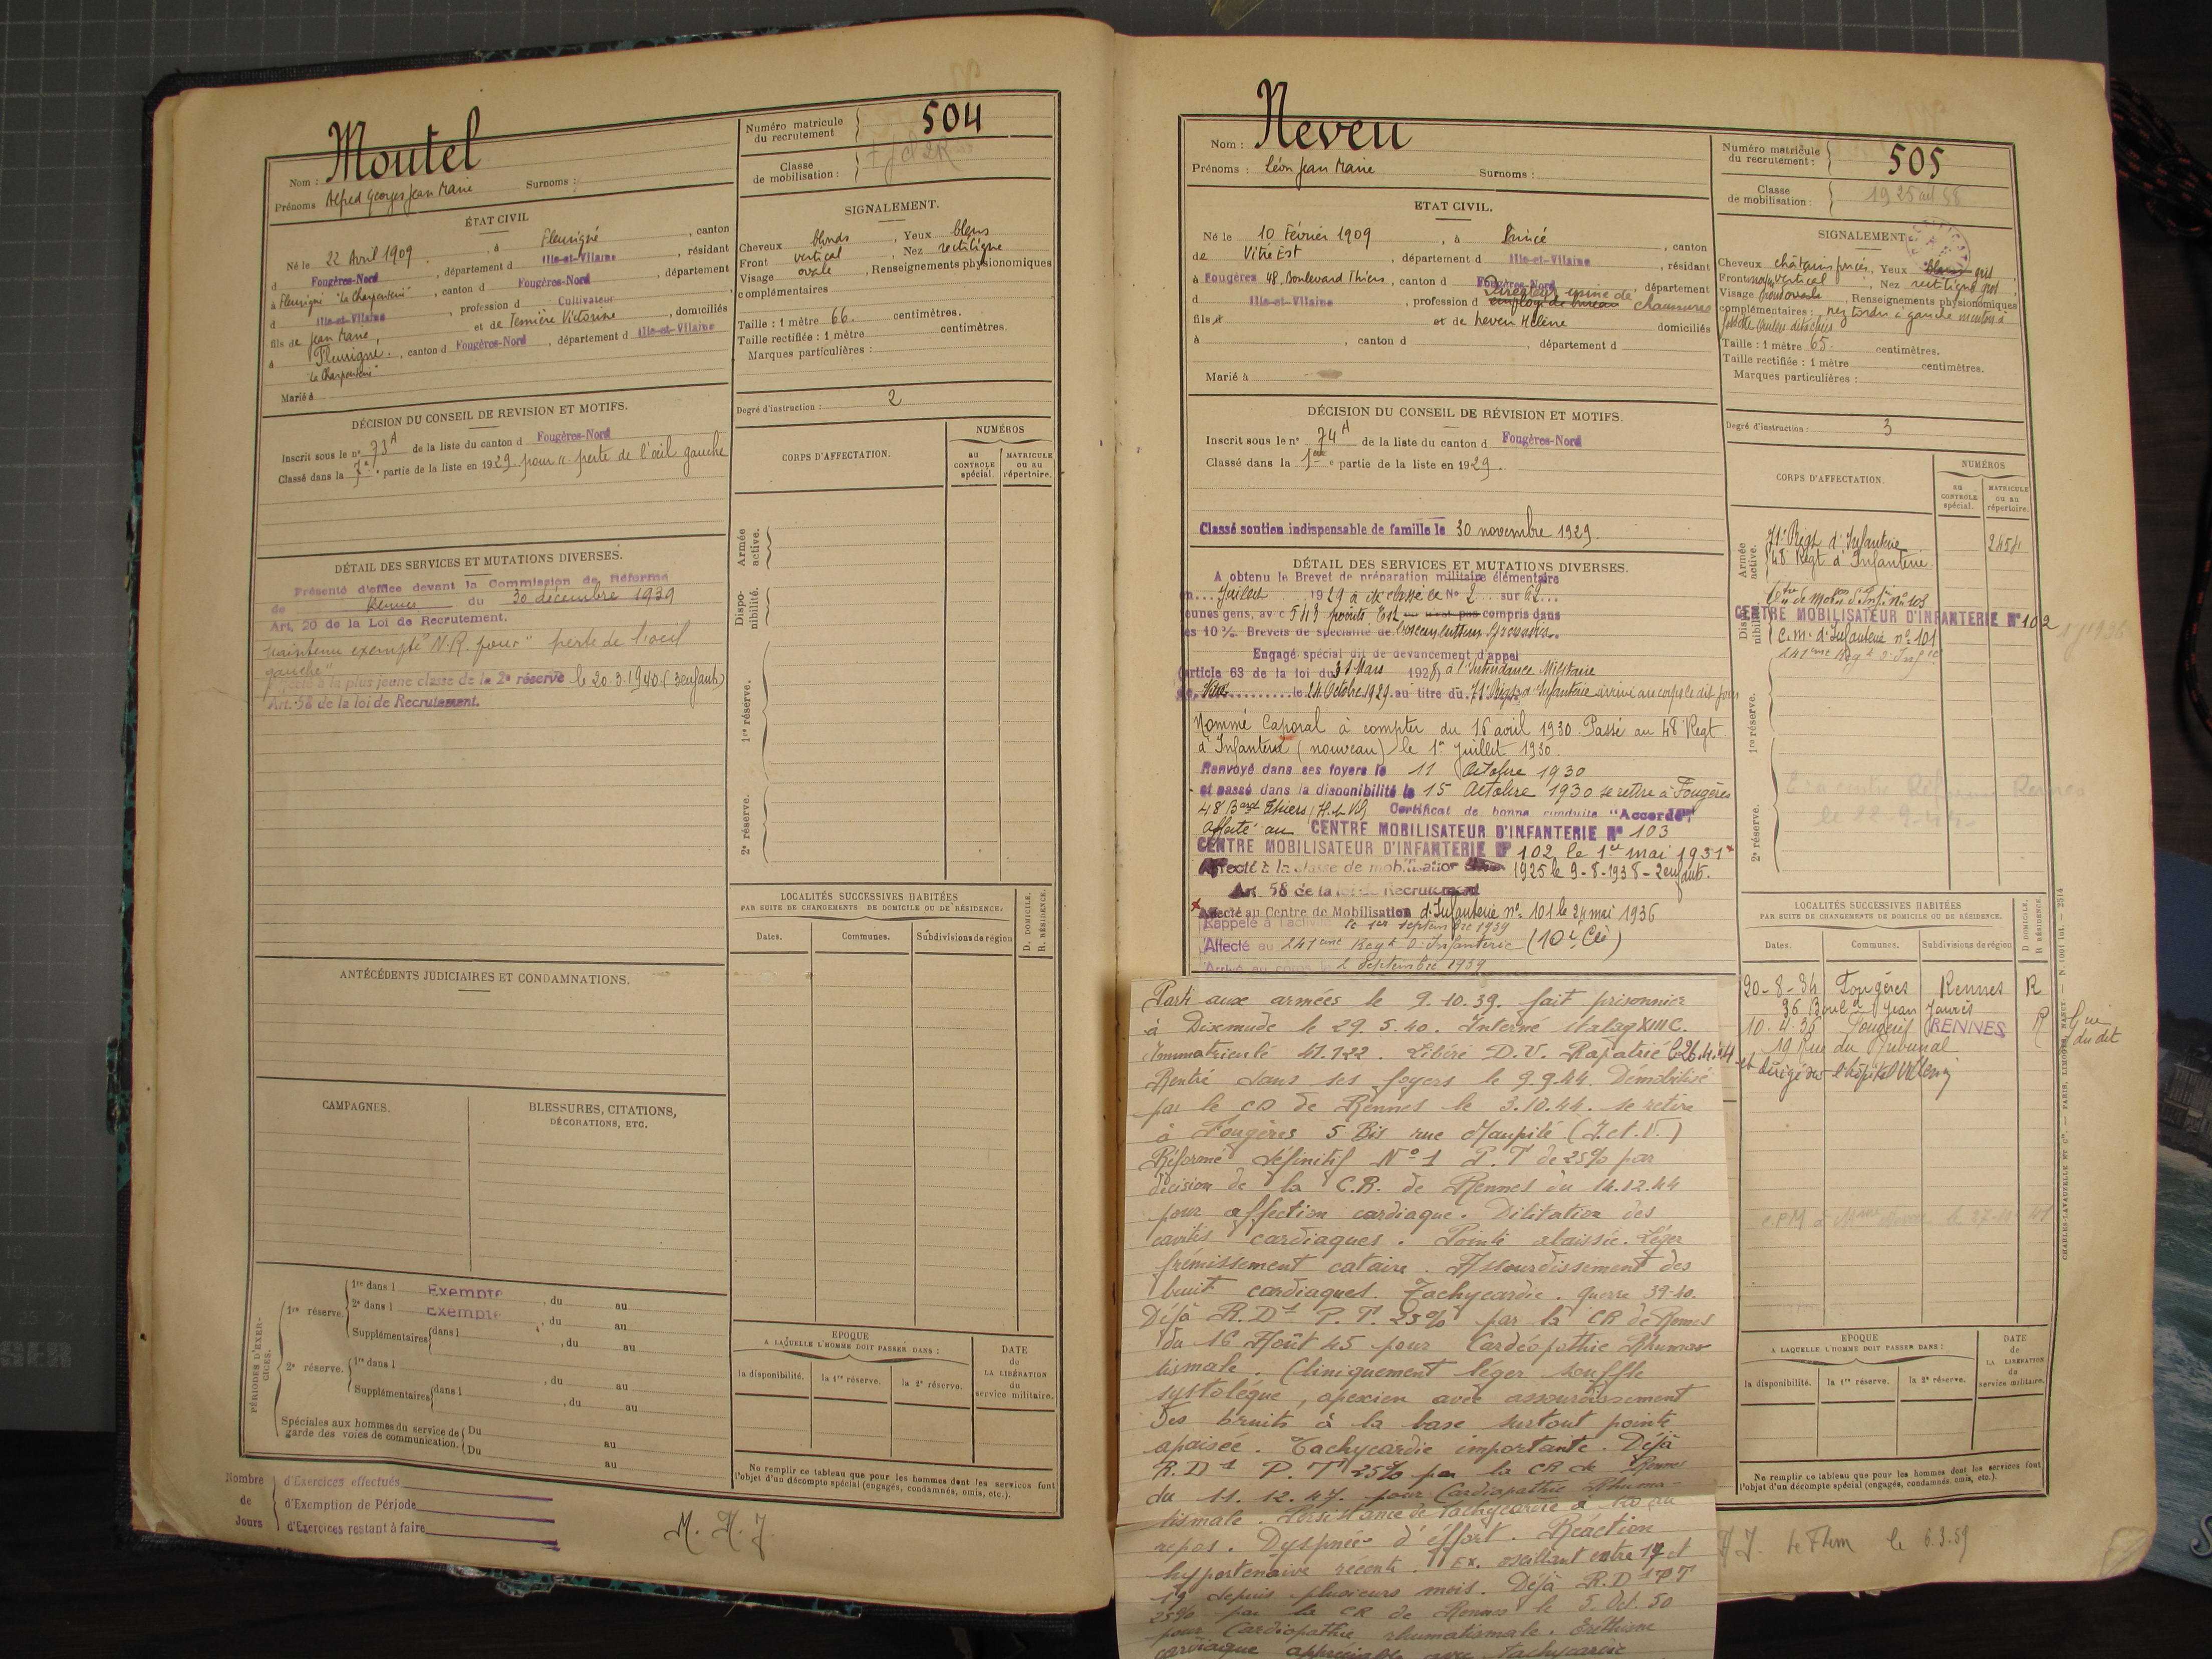 Moutel
Nom :
Prénoms Alfred Georges Jean Marie Surnoms :
Numéro matricule du recrutement 504
Classe de mobilisation :
ÉTAT CIVIL
Né le 22 Avril 1909, à Fleurigné, canton
d Fougères-Nord, département d Ille-et-Vilaine, résidant
à Fleurigné "La Charpenterie", canton d Fougères-Nord, département
d Ille-et-Vilaine, profession d Cultivateur
fils de Jean Marie, et de Victorine, domiciliés
à Fleurigné, canton d Fougères-Nord, département d Ille-et-Vilaine
"La Charpenterie"
Marié à
SIGNALEMENT.
Cheveux blonds, Yeux bleus
Front vertical, Nez rectiligne
Visage ovale, Renseignements physionomiques
complémentaires
Taille : 1 mètre 66. centimètres.
Taille rectifiée : 1 mètre centimètres.
Marques particulières :
Degré d'instruction : 2
DÉCISION DU CONSEIL DE REVISION ET MOTIFS.
Inscrit sous le n° 73 A de la liste du canton d Fougères-Nord
Classé dans la 7e partie de la liste en 1929 pour "perte de l'œil gauche
DÉTAIL DES SERVICES ET MUTATIONS DIVERSES.
Présenté d'office devant la Commission de Réforme
de Rennes du 30 décembre 1939
Art. 20 de la Loi de Recrutement.
maintenu exempté N.R. pour "perte de l'oeil
gauche"
à la plus jeune classe de la 2e réserve le 20.3.1940 (3 enfants)
Art. 58 de la loi de Recrutement.
CORPS D'AFFECTATION.
NUMÉROS
au CONTROLE spécial.
MATRICULE ou au répertoire.
Armée active.
Disponibilité.
1re réserve.
2e réserve.
ANTÉCÉDENTS JUDICIAIRES ET CONDAMNATIONS.
LOCALITÉS SUCCESSIVES HABITÉES
PAR SUITE DE CHANGEMENTS DE DOMICILE OU DE RÉSIDENCE.
Dates. Communes. Subdivisions de région
D. DOMICILE.
R. RÉSIDENCE.
CAMPAGNES.
BLESSURES, CITATIONS,
DÉCORATIONS, ETC.
PÉRIODES D'EXERCICES.
1re réserve. 1re dans l Exempté, du au
2e dans l Exempté, du au
Supplémentaires dans l, du au
2e réserve. 1re dans l, du au
Supplémentaires dans l, du au
Spéciales aux hommes du service de garde des voies de communication. Du au
Du au
EPOQUE
A LAQUELLE L'HOMME DOIT PASSER DANS :
la disponibilité. la 1re réserve. la 2e réserve.
DATE de LA LIBÉRATION du service militaire.
Ne remplir ce tableau que pour les hommes dont les services font
l'objet d'un décompte spécial (engagés, condamnés, omis, etc.).
Nombre de Jours
d'Exercices effectués
d'Exemption de Période
d'Exercices restant à faire
Neveu
Nom :
Prénoms : Léon Jean Marie Surnoms :
Numéro matricule du recrutement : 505
Classe de mobilisation : 1925 art 58
ETAT CIVIL.
Né le 10 Février 1909, à Princé, canton
de Vitré Est, département d Ille-et-Vilaine, résidant
à Fougères 48, Boulevard Thiers, canton d Fougères-Nord, département
d Ille-et-Vilaine, profession d employé de bureau Directeur usine de chaussures
fils d et de Neveu Hélène domiciliés
à, canton d, département d
Marié à
SIGNALEMENT
Cheveux châtains foncés, Yeux bleus gris
Front vertical, Nez rectiligne gros
Visage ovale, Renseignements physionomiques
complémentaires : nez tordu à gauche menton à
fossette
Taille : 1 mètre 65. centimètres.
Taille rectifiée : 1 mètre centimètres.
Marques particulières :
Degré d'instruction : 3
DÉCISION DU CONSEIL DE RÉVISION ET MOTIFS.
Inscrit sous le n° 74 A de la liste du canton d Fougères-Nord
Classé dans la 1ère partie de la liste en 1929.
Classé soutien indispensable de famille le 30 novembre 1929.
DÉTAIL DES SERVICES ET MUTATIONS DIVERSES.
A obtenu le Brevet de préparation militaire élémentaire
en Juillet 1929 a été classé le No 2 sur 62
jeunes gens, avec 543 points. Est compris dans
les 10% Brevets de spécialité de
Engagé spécial dit de devancement d'appel
(article 63 de la loi du 31 Mars 1928) à l'Intendance Militaire
le 24 Octobre 1929 au titre du 71e Régt d'Infanterie arrivé au corps le dit jour
Nommé Caporal à compter du 16 avril 1930. Passé au 48e Régt
d'Infanterie (nouveau) le 1er juillet 1930.
Renvoyé dans ses foyers le 11 Octobre 1930
et passé dans la disponibilité le 15 Octobre 1930 se retire à Fougères
48 Bard Thiers (I.&V) Certificat de bonne conduite "Accordé"
Affecté au CENTRE MOBILISATEUR D'INFANTERIE N° 103
CENTRE MOBILISATEUR D'INFANTERIE N° 102, le 1er mai 1931
Affecté à la classe de mobilisation 1925 le 9-8-1938 - 2 enfants.
Art. 58 de la loi de Recrutement
Affecté au Centre de Mobilisation d'Infanterie n° 101 le 24 mai 1936
Rappelé à l'activité le 1er septembre 1939
Affecté au 241ème Régt d'Infanterie (10e Cie)
Arrivé au corps le 2 Septembre 1939
CORPS D'AFFECTATION.
NUMÉROS
au CONTROLE spécial.
MATRICULE ou au répertoire.
Armée active.
71e Régt d'Infanterie 2454
48 Régt d'Infanterie.
Disponibilité.
Ctre de Mobon d'Infie No 103
CENTRE MOBILISATEUR D'INFANTERIE N° 102
C.M. d'Infanterie n° 101
241ème Régt d'Infie
1re réserve.
2e réserve.
le 22-9-44
Parti aux armées le 9.10.39. fait prisonnier
à Dixmude le 29.5.40. Interné stalag XIII C.
Immatriculé 41.122. Libéré D.V. Rapatrié le 26.4.44
et dirigé sur l'hôpital Villemin
Rentré dans ses foyers le 9.9.44. Démobilisé
par le CD de Rennes le 3.10.44. se retire
à Fougères 5 Bis rue Maupilé (I.et.V.)
Réformé définitif N° 1 P.T de 25% par
décision de la C.R. de Rennes du 14.12.44
pour affection cardiaque. Dilitation des
cavités cardiaques. Pointe abaissée. Léger
frémissement cataire. Assourdissement des
bruit cardiaques. Tachycardie. guerre 39-40.
Déjà R.D1 P.T. 25% par la CR de Rennes
du 16 Août 45 pour Cardiopathie Rhuma
tismale. Cliniquement léger souffle
systolique, apexien avec assourdissement
des bruits à la base surtout pointe
apaisée. Tachycardie importante. Déjà
R.D1 P.T 25% par la CR de Rennes
du 11.12.47. pour Cardiopathie Rhuma-
tismale. Persistance de tachycardie à 120 au
repos. Dyspnée d'éffort. Réaction
hypertensive récente. T.Ex. oscillant entre 17 et
19 depuis plusieurs mois. Déjà R.D1 PT
25% par la CR de Rennes le 5. Oct. 50
pour Cardiopathie rhumatismale. Eréthisme
cardiaque appréciable avec tachycardie
LOCALITÉS SUCCESSIVES HABITÉES
PAR SUITE DE CHANGEMENTS DE DOMICILE OU DE RÉSIDENCE.
Dates. Communes. Subdivisions de région
D DOMICILE.
R RÉSIDENCE.
20-8-34 Fougères Rennes R
36 Boul d Jean Jaurès
10.4.36 Fougères RENNES R
19 Rue du Tribunal
EPOQUE
A LAQUELLE L'HOMME DOIT PASSER DANS :
la disponibilité. la 1re réserve. la 2e réserve.
DATE de LA LIBÉRATION du service militaire.
Ne remplir ce tableau que pour les hommes dont les services font
l'objet d'un décompte spécial (engagés, condamnés, omis, etc.).
le 6.3.59
CHARLES-LAVAUZELLE ET Cie. — PARIS, LIMOGES, NANCY.